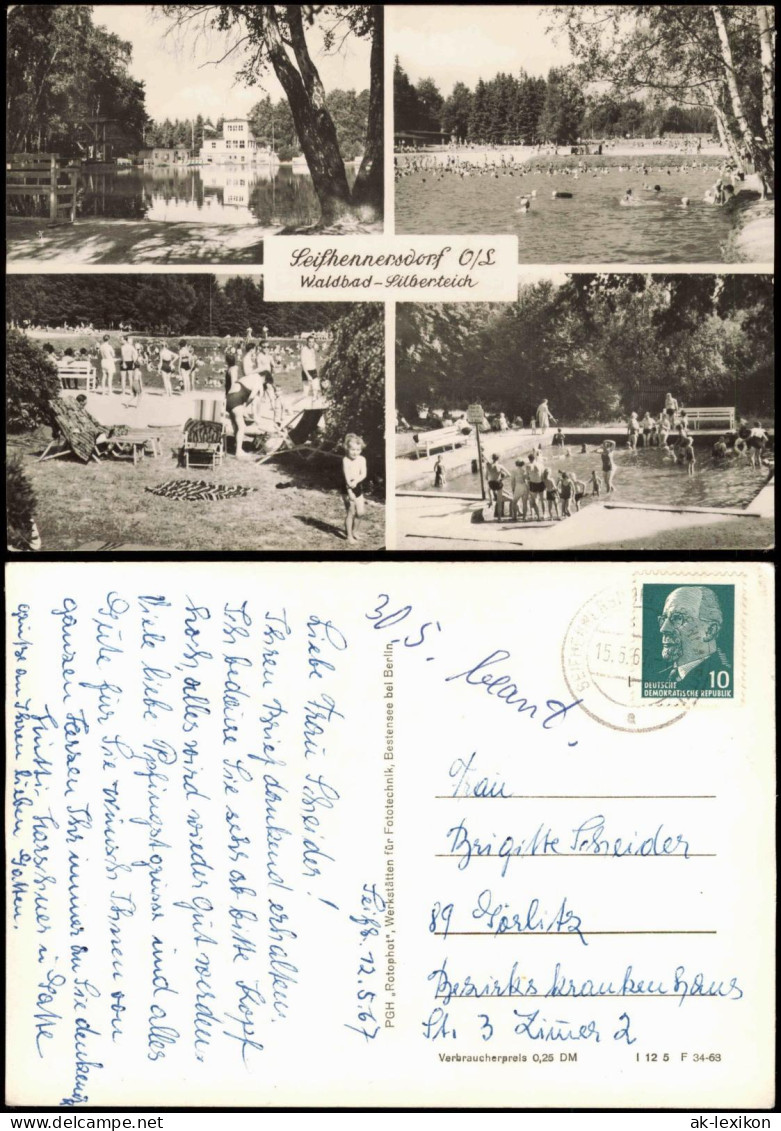 Seifhennersdorf O/L
Waldbad-Silberteich
Seifh. 12.5.67
Liebe Frau Scheider!
Ihren Brief dankend erhalten.
Ich bedaure Sie sehr ab bitte Kopf
hoch, alles wird wieder gut werden.
Viele liebe Pfingstgrüsse und alles
Gute für Sie wünsch Ihnen von
ganzen Herzen Ihr immer an Sie denken
u Gatte
Grüße an Ihren lieben Gatten.
PGH „Rotophot", Werkstätten für Fototechnik, Bestensee bei Berlin
30.5. beant.
15.5.6
DEUTSCHE
DEMOKRATISCHE REPUBLIK
10
Frau
Brigitte Scheider
89 Görlitz
Bezirkskrankenhaus
St. 3 Zimer 2
Verbraucherpreis 0,25 DM
I 12 5 F 34-68
ansichtskarten-lexikon
ak-lexikon.com